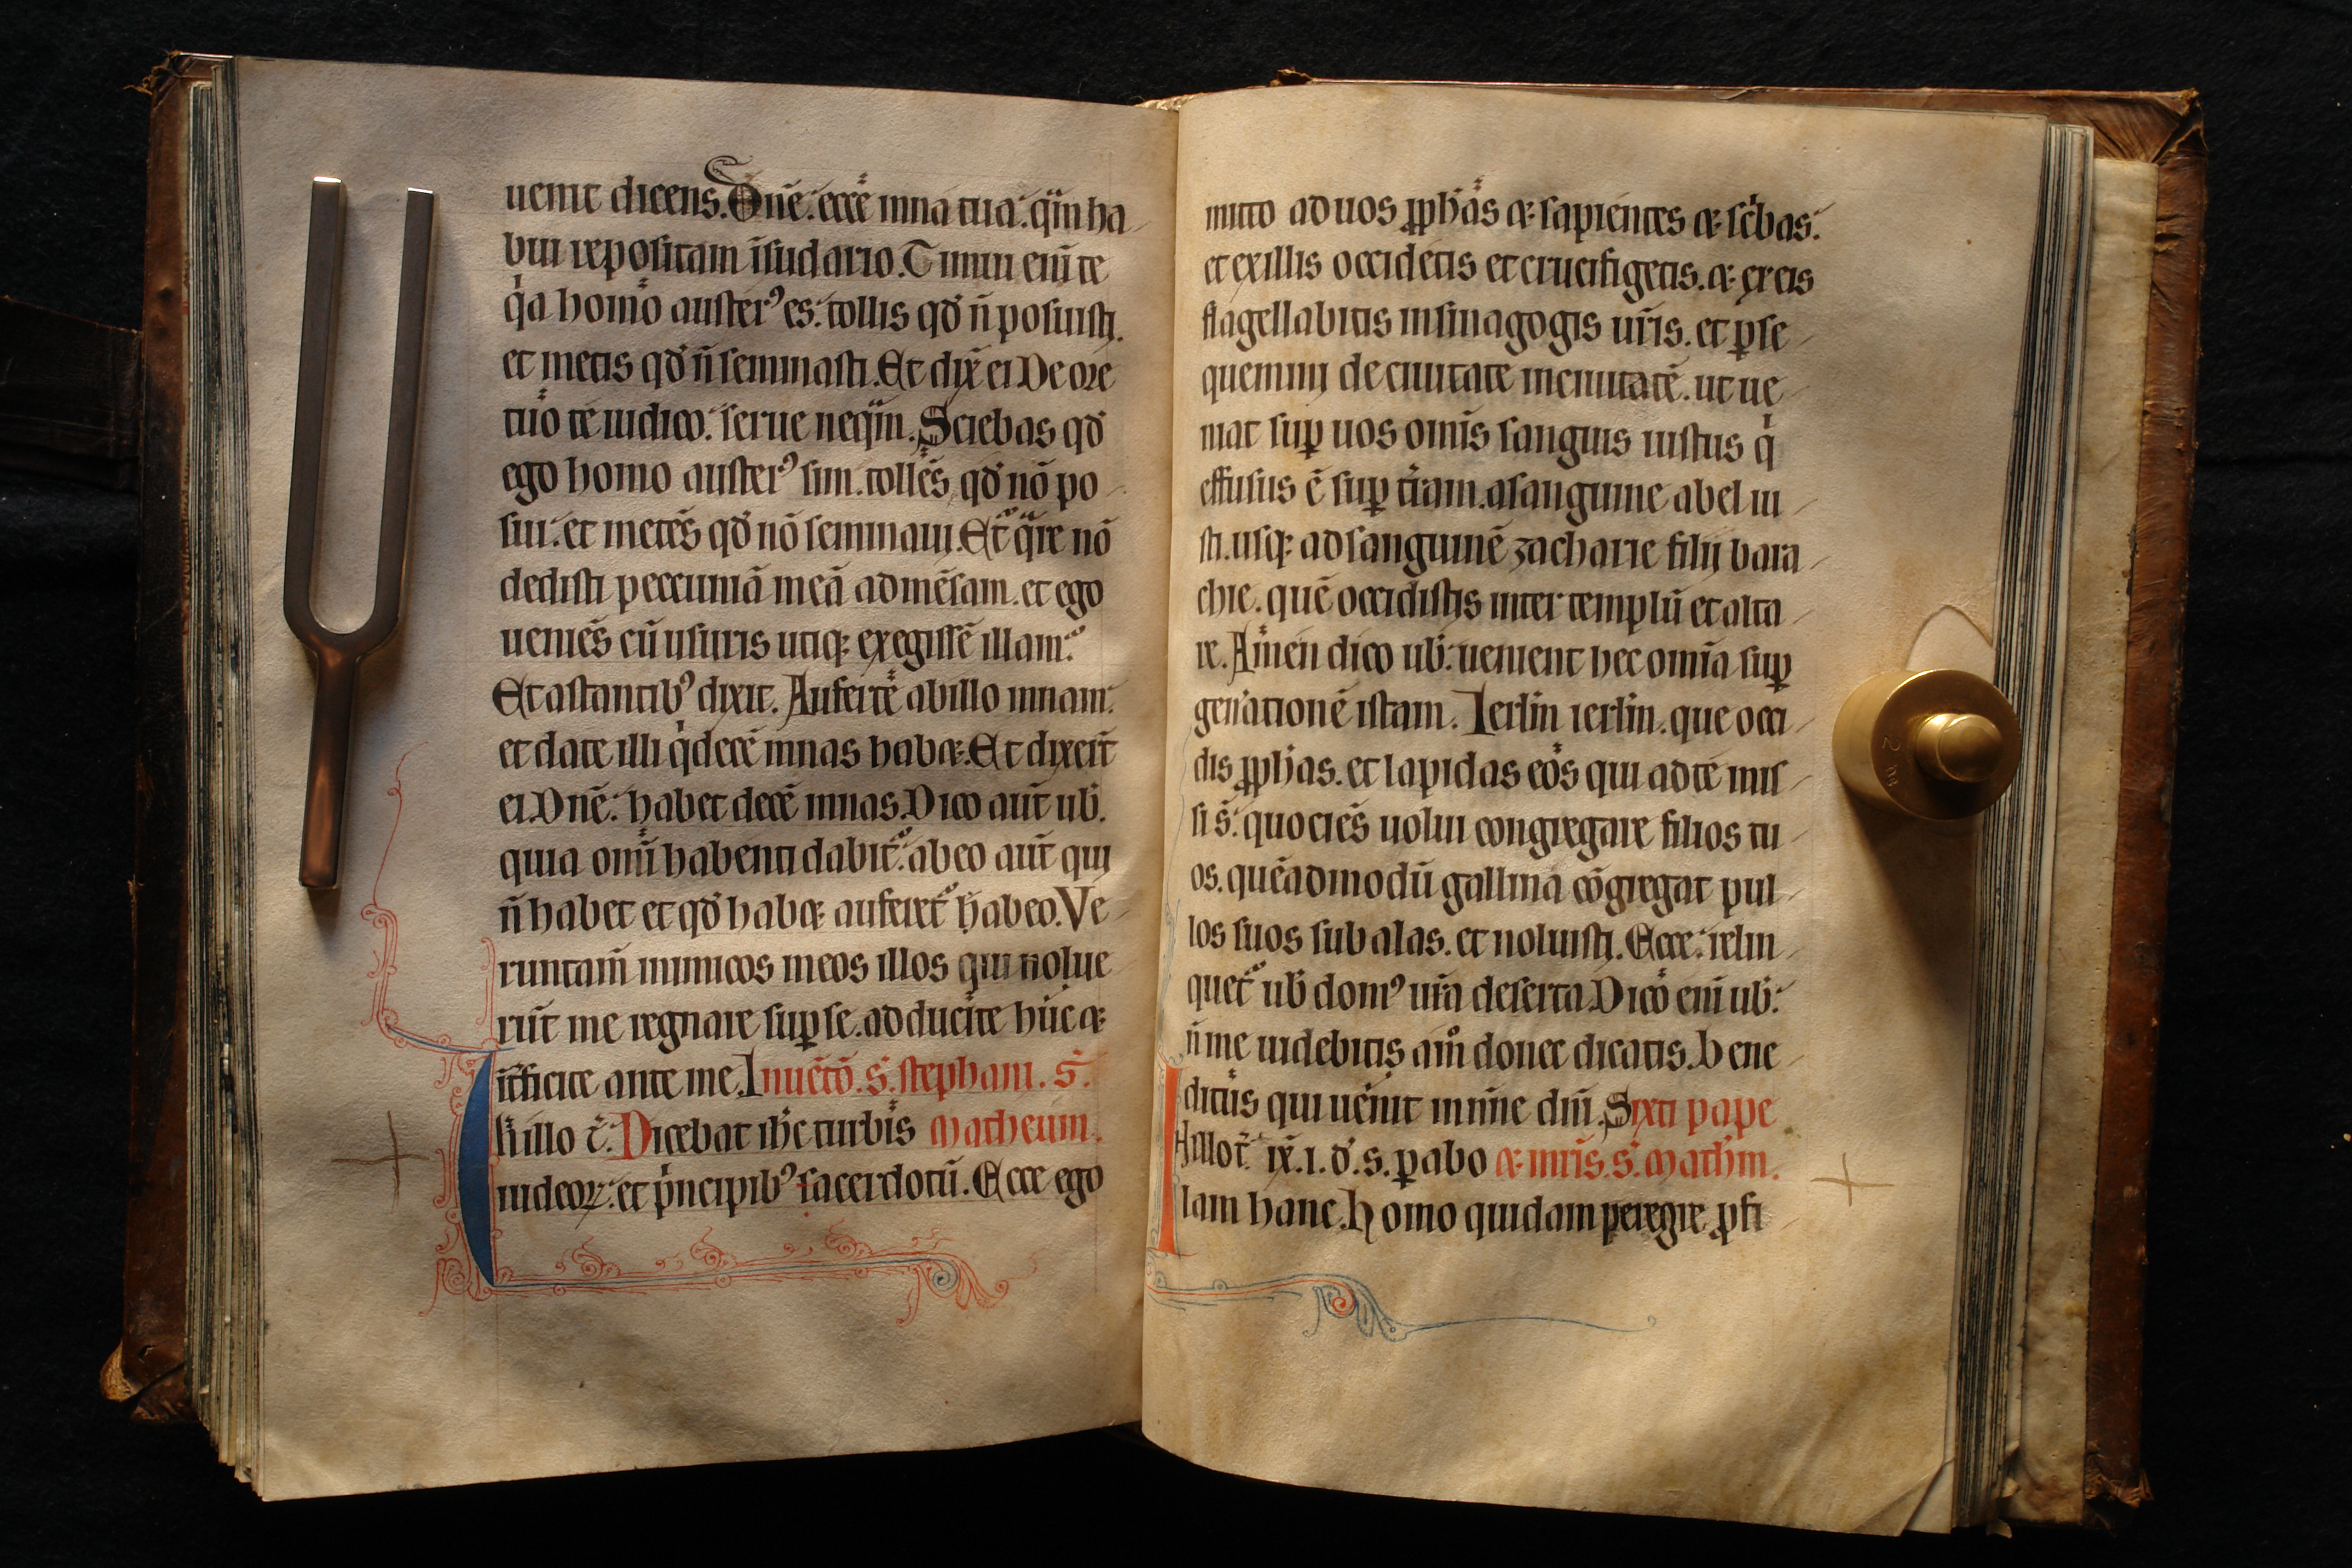 uenit dicens. Dn̄e. ecce mna tua. q̄m ha
bui repositam īsudario. Timui enī te
qͥa homo austerꝰ es. tollis qđ n̄ posuisti.
et metis qđ n̄ seminasti. Et dix̄ ei De ore
tuo te iudico. serue neq̄m. Sciebas qđ
ego homo austerꝰ sum. tollēs qđ nō po
sui. et metēs qđ nō seminaui. Et q̄re nō
dedisti peccuniā meā ad mēsam. et ego
ueniēs cū usuris utiqꝫ exegissē illam.
Et astantibꝰ dixit. Auferte ab illo mnam.
et date illi qͥ decē mnas habꝫ. Et dixer̄t
ei Dn̄e. habet decē mnas. Dico aūt uƀ.
quia omī habenti dabit᷑. ab eo aūt qui
n̄ habet et qđ habꝫ auferet᷑ habeo. Ve
runtam̄ inimicos meos illos qui nolue
rūt me regnare suꝑ se. adducite hūc ⁊
it̄ficite ante me. Inuētō. s̄. stephani. s̄.
In illo t̄. Dicebat ih̄c turbis Matheum.
iudeoꝝ. et pͥncipibꝰ sacerdotū. Ecce ego
mitto ad uos ꝓph̄as ⁊ sapientes ⁊ sc̄bas.
et ex illis occidetis et crucifigetis. ⁊ ex eis
flagellabitis in sinagogis ur̄is. et ꝑse
quemini de ciuitate in ciuitatē. ut ue
niat suꝑ uos omīs sanguis iustus qͥ
effusus ē suꝑ tr̄am. a sanguine abel iu
sti. usqꝫ ad sanguinē zacharie filij bara
chie. quē occidistis inter templū et alta
re. Amen dico uƀ. uenient hec omīa suꝑ
gen̄ationē istam. Ierl̄m ierl̄m. que occi
dis ꝓph̄as. et lapidas eos qui ad te mis
si s̄. quociēs uolui congregare filios tu
os. quēadmodū gallina cōgregat pul
los suos sub alas. et noluisti. Ecce. relin
quet᷑ uƀ domꝰ ur̄a deserta. Dico enī uƀ.
n̄ me uidebitis am̄o donec dicatis. Bene
dictus qui uenit in nn̄e dn̄i. Sixti pape
In illo t̄. ix̄. i. đ. s. ꝑabo ⁊ mr̄is. s̄. Mathm̄.
lam hanc. Homo quidam peregre ꝓfi
2